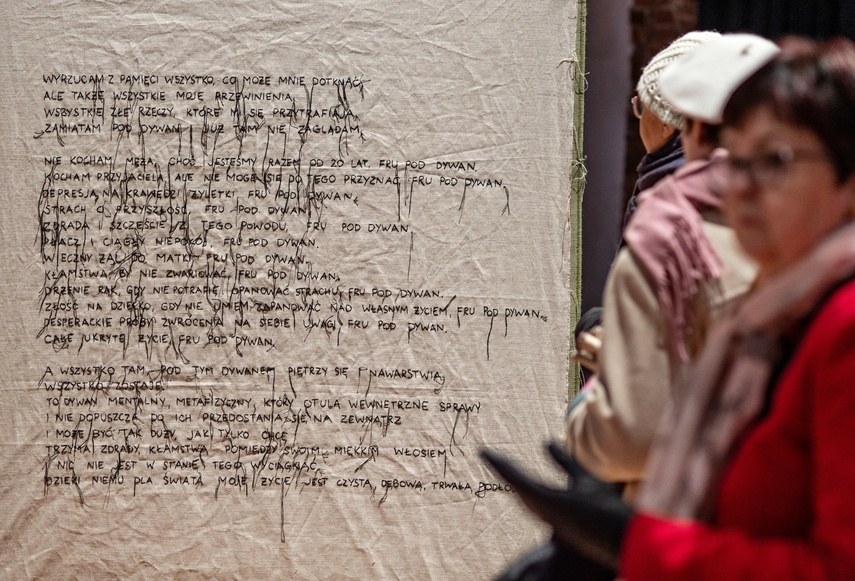 WYRZUCAM Z PAMIĘCI WSZYSTKO, CO MOŻE MNIE DOTKNĄĆ,
ALE TAKŻE WSZYSTKIE MOJE PRZEWINIENIA,
WSZYSTKIE ZŁE RZECZY, KTÓRE MI SIĘ PRZYTRAFIAJĄ,
ZAMIATAM POD DYWAN I JUŻ TAM NIE ZAGLĄDAM,
NIE KOCHAM MĘŻA, CHOĆ JESTEŚMY RAZEM OD 20 LAT, FRU POD DYWAN.
KOCHAM PRZYJACIELA, ALE NIE MOGĘ SIĘ DO TEGO PRZYZNAĆ, FRU POD DYWAN.
DEPRESJA NA KRAWĘDZI ŻYLETKI, FRU POD DYWAN.
STRACH O PRZYSZŁOŚĆ, FRU POD DYWAN.
ZDRADA I SZCZĘŚCIE Z TEGO POWODU, FRU POD DYWAN.
PŁACZ I CIĄGŁY NIEPOKÓJ, FRU POD DYWAN.
WIECZNY ŻAL DO MATKI, FRU POD DYWAN.
KŁAMSTWA, BY NIE ZWARIOWAĆ, FRU POD DYWAN.
DRŻENIE RĄK, GDY NIE POTRAFIĘ OPANOWAĆ STRACHU, FRU POD DYWAN.
ZŁOŚĆ NA DZIECKO, GDY NIE UMIEM ZAPANOWAĆ NAD WŁASNYM ŻYCIEM, FRU POD DYWAN.
DESPERACKIE PRÓBY ZWRÓCENIA NA SIEBIE UWAGI, FRU POD DYWAN.
CAŁE UKRYTE ŻYCIE, FRU POD DYWAN.
A WSZYSTKO TAM, POD TYM DYWANEM PIĘTRZY SIĘ I NAWARSTWIA,
WSZYSTKO ZOSTAJE.
TO DYWAN MENTALNY, METAFIZYCZNY, KTÓRY OTULA WEWNĘTRZNE SPRAWY
I NIE DOPUSZCZA DO ICH PRZEDOSTANIA SIĘ NA ZEWNĄTRZ
I MOŻE BYĆ TAK DUŻY, JAK TYLKO CHCĘ
TRZYMA ZDRADY, KŁAMSTWA POMIĘDZY SWOIM MIĘKKIM WŁOSIEM
I NIC NIE JEST W STANIE TEGO WYCIĄGNĄĆ.
DZIĘKI NIEMU DLA ŚWIATA MOJE ŻYCIE JEST CZYSTĄ, DĘBOWĄ, TRWAŁĄ